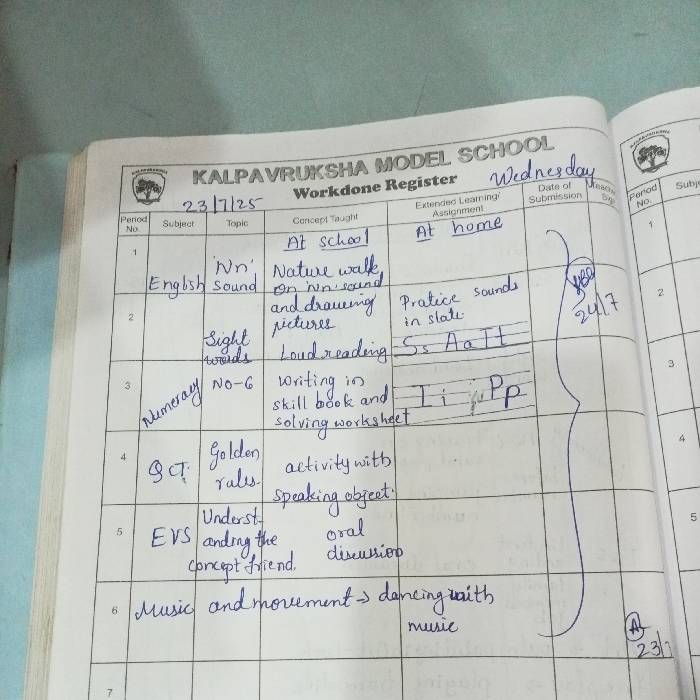 KALPAVRUKSHA MODEL SCHOOL
Workdone Register
23/7/25
Wednesday
Period No. Subject Topic Concept Taught Extended Learning/ Assignment Date of Submission
At school At home
1 English 'Nn' sound Nature walk on 'Nn' sound
2 and drawing pictures Pratice sounds in slate
Sight words Loud reading Ss Aa Tt
3 Numeracy No-6 writing in skill book and solving worksheet Ii Pp
4 Golden rules. activity with speaking object.
5 EVS Understanding the concept friend. oral discussion
6 Music and movement → dancing with music
7
24/7
Period No.
1
2
3
4
5